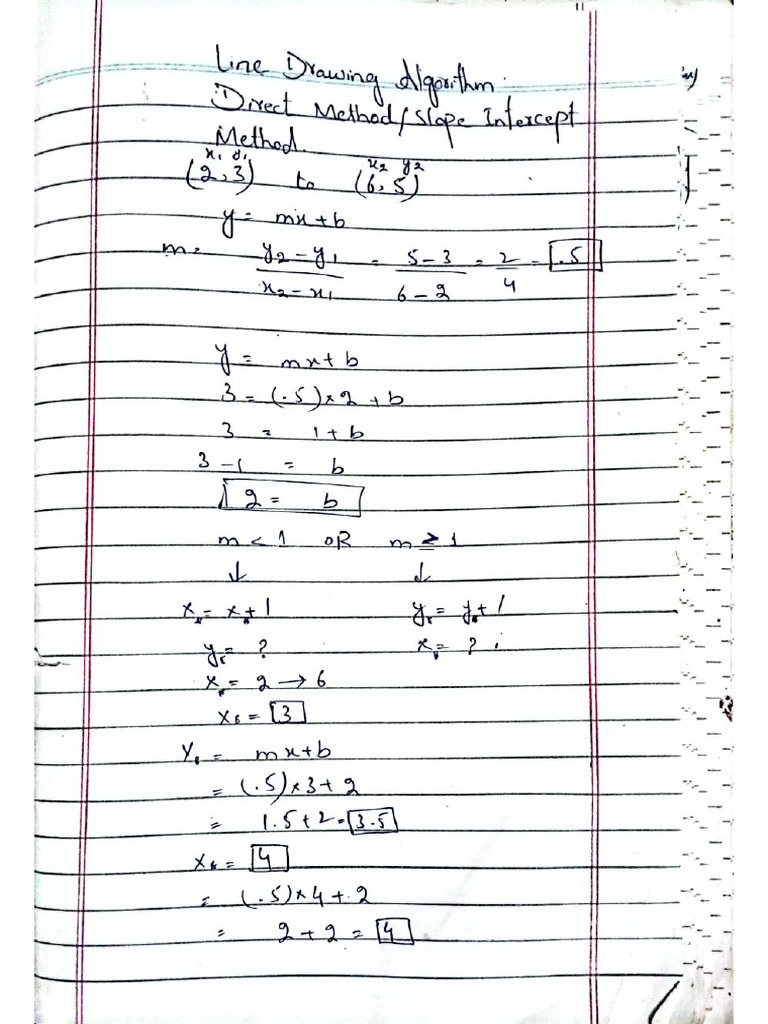 Line Drawing Algorithm.
Direct Method/Slope Intercept
Method.
x₁ y₁ x₂ y₂
(2,3) to (6,5)
y = mx+b
m = y₂-y₁ / x₂-x₁ = 5-3 / 6-2 = 2/4 = .5
y = mx+b
3 = (.5)×2 +b
3 = 1+b
3-1 = b
2 = b
m < 1 OR m ≥ 1
↓ ↓
xₖ = xₖ+1 yₖ = yₖ+1
yₖ = ? xₖ = ?
xₖ = 2 → 6
xₖ = 3
yₖ = mx+b
= (.5)×3+2
= 1.5+2=3.5
xₖ = 4
= (.5)×4+2
= 2+2 = 4